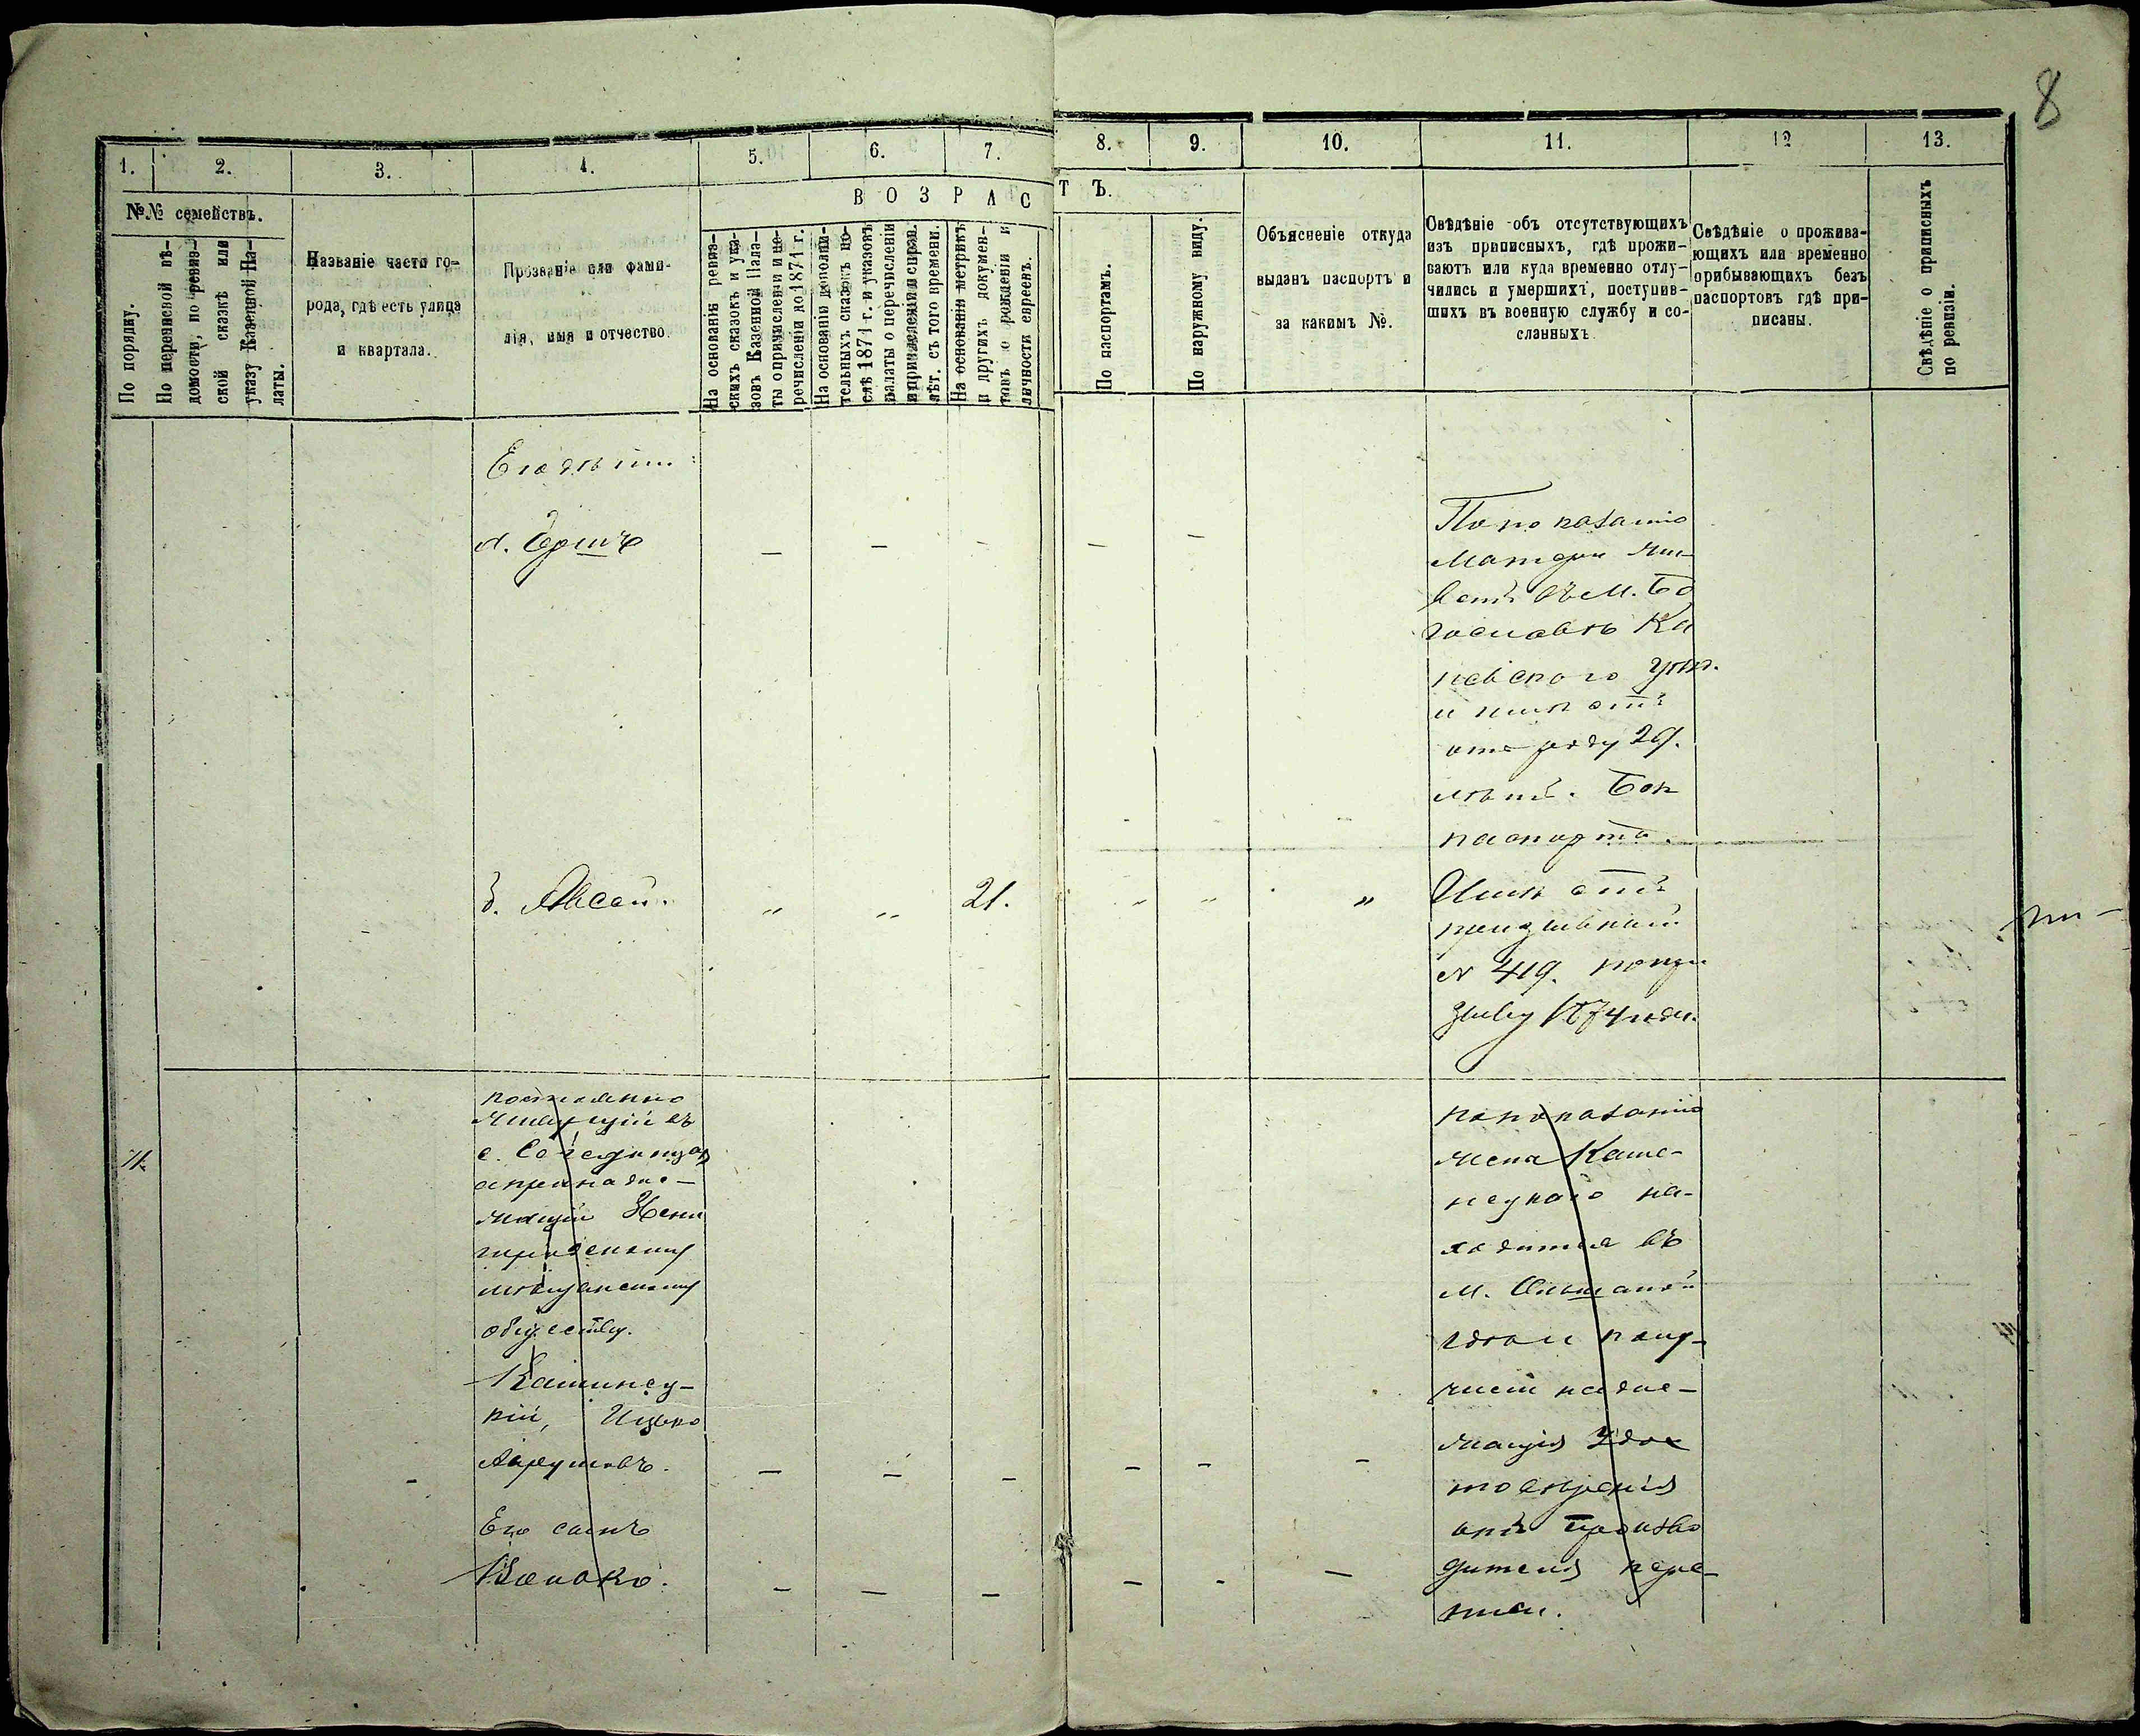 8
1. 2. 3. 4. 5. 6. 7. 8. 9. 10. 11. 12 13.
№№ семействъ.
По порядку.
По перечневой вѣ-
домости, по ревиз-
ской сказкѣ или
указу Казенной Па-
латы.
Названіе части го-
рода, гдѣ есть улица
и квартала.
Прозваніе или фами-
лія, имя и отчество
ВОЗРАСТЪ.
На основаніи ревиз-
скихъ сказокъ и ука-
зовъ Казенной Пала-
ты о причисленіи и пе-
речисленіи до 1871 г.
На основаніи дополни-
тельныхъ сказокъ по-
слѣ 1871 г. и указовъ
палаты о перечисленіи
и причисленіи и справ.
лѣт. съ того времени.
На основаніи метрикъ
и другихъ докумен-
товъ о рожденіи и
личности евреевъ.
По паспортамъ.
По наружному виду.
Объясненіе откуда
выданъ паспортъ и
за какимъ №.
Свѣдѣніе объ отсутствующихъ
изъ приписныхъ, гдѣ прожи-
ваютъ или куда временно отлу-
чились и умершихъ, поступив-
шихъ въ военную службу и со-
сланныхъ
Свѣдѣніе о прожива-
ющихъ или временно
прибывающихъ безъ
паспортовъ гдѣ при-
писаны.
Свѣдѣніе о приписныхъ
по ревизіи.
Его дѣти:
а. Сруль
По показанію
Матери жи-
ветъ въ м. Бо
гославѣ Ка
невского уѣз.
и имѣетъ
отъ роду 29.
лѣтъ. Безъ
паспорта.
б. Авсей. 21.
Имѣетъ
призывной
№ 419. по при
зыву 1874 год.
постоянно
Живущій въ
с.
а принадле-
жащій Звени
городскому
мѣщанскому
обществу.
Каминец-
кій, Ицько
Его сынъ
Волько.
по показанію
жена Каме-
нецкаго на-
ходится въ
м. Ольшаной
гдѣ и полу-
читъ надле-
жащія Удос
товѣренія
отъ произво
дителя пере-
писи.